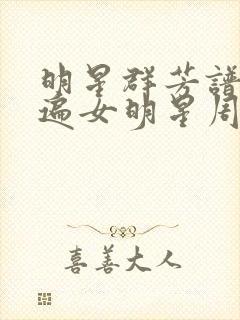 明星群芳譜
遍女明星周
喜善大人